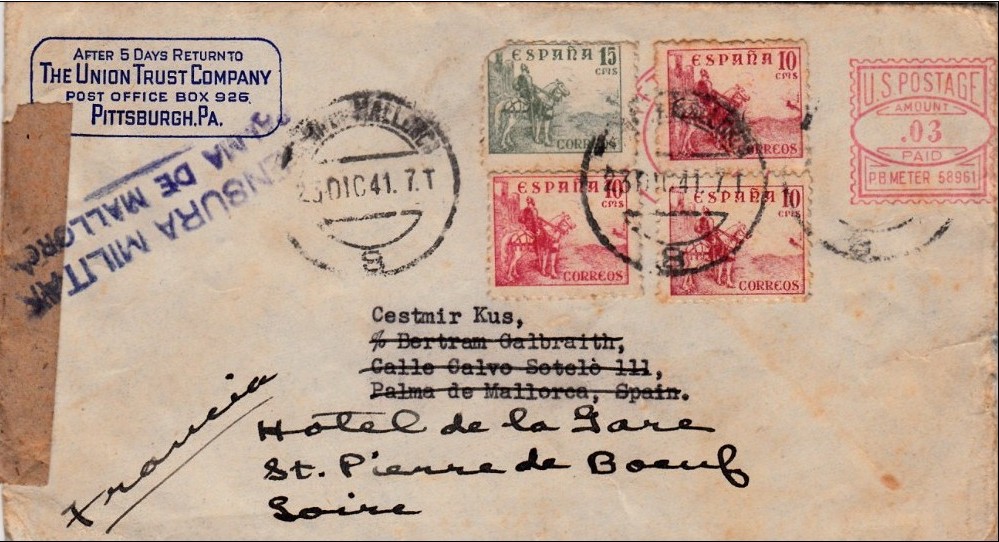 AFTER 5 DAYS RETURN TO
THE UNION TRUST COMPANY
POST OFFICE BOX 926,
PITTSBURGH, PA.
CENSURA MILITAR
PALMA DE MALLORCA
MALLORCA
23 DIC 41. 7.T
8
ESPAÑA 15 CTS
CORREOS
ESPAÑA 10 CTS
CORREOS
ESPAÑA 10 CTS
CORREOS
ESPAÑA 10 CTS
CORREOS
23 DIC 41. 7 T
8
U.S. POSTAGE
AMOUNT
.03
PAID
P.B. METER 58961
8
Cestmir Kus,
% Bertram Galbraith,
Calle Calvo Sotelò 111,
Palma de Mallorca, Spain.
Francia
Hotel de la Gare
St. Pierre de Boeuf
Loire